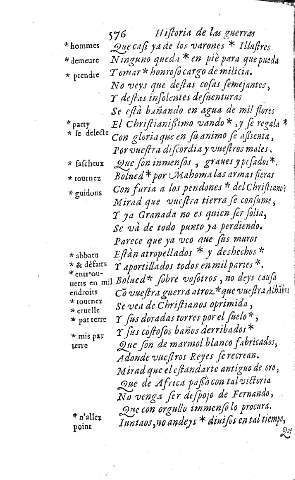 576 Historia de las guerras
* hommes Que casi ya de los varones * Illustres
* demeure Ninguno queda * en pie para que pueda
* prendre Tomar * honroso cargo de milicia.
No veys que destas cosas semejantes,
Y destas insolentes desuenturas
Se està bañando en agua de mil flores
* party El Christianissimo vando *, y se regala *
* se delecte Con gloria que en su animo se assienta,
Por vuestra discordia y vuestros males.
* fascheux Que son inmensos, graves y pesados *.
* tournez Bolued * por Mahoma las armas fieras
* guidons Con furia a los pendones * del Christiano:
Mirad que vuestra tierra se consume,
Y ya Granada no es quien ser solia,
Se và de todo punto ya perdiendo.
Parece que ya veo que sus muros
* abbatu Estàn atropellados * y deshechos *
* & défaits Y aportillados todos en mil partes *.
* en
uerts en mil Bolued * sobre vosotros, no deys causa
endroits Cõ vuestra guerra atroz * que vuestra
* tournez Se vea de Christianos oprimida,
* cruelle
* par terre Y sus doradas torres por el suelo *,
* mis par Y sus costosos baños derribados *
terre Que son de marmol blanco fabricados,
Adonde vuestros Reyes se recrean.
Mirad que el estandarte antiguo de oro,
Que de Africa passò con tal victoria
No venga ser despojo de Fernando,
Que con orgullo immenso lo procura.
* n'allez Iuntaos, no andeys * diuisos en tal tiempo,
point
Que